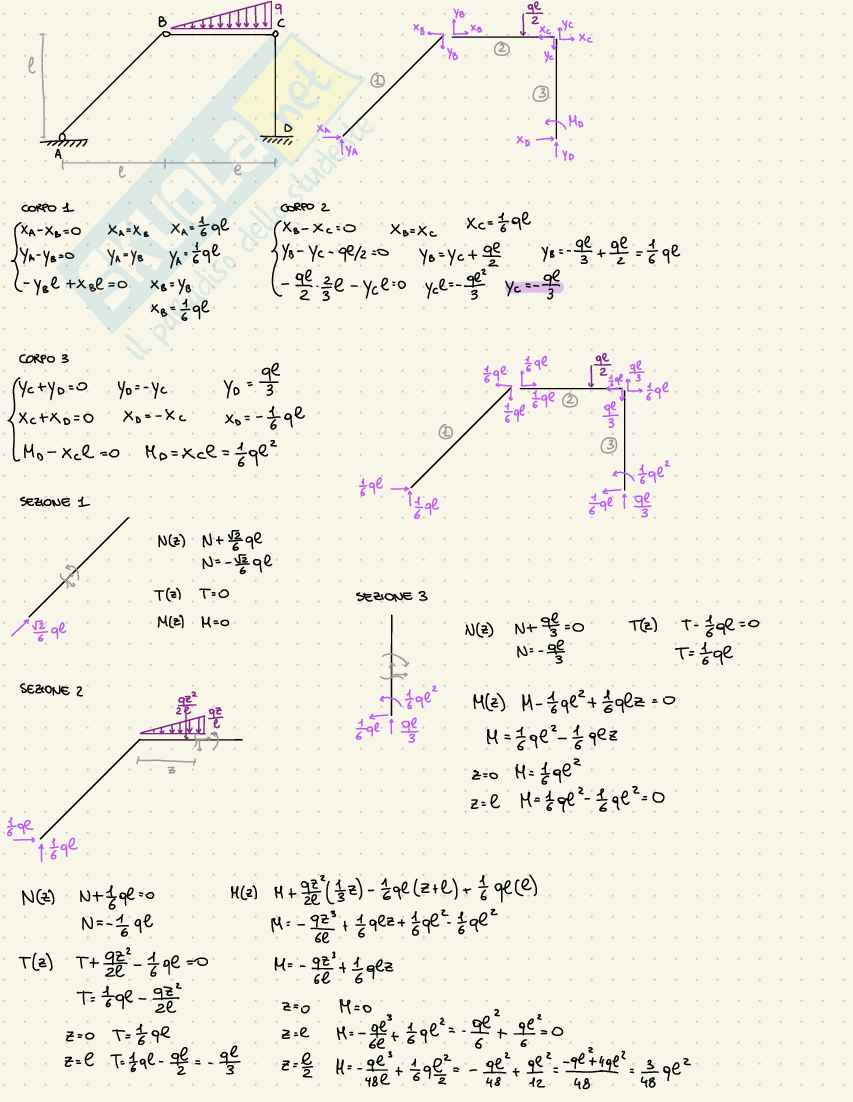 B C q
l
A D
l l
x_A y_A ① x_B y_B y_B x_B ② ql/2 x_C y_C y_C x_C ③ M_D x_D y_D
SKUOLA.net
il paradiso dello studente
CORPO 1
x_A - x_B = 0 x_A = x_B x_A = 1/6 ql
y_A - y_B = 0 y_A = y_B y_A = 1/6 ql
- y_B l + x_B l = 0 x_B = y_B
x_B = 1/6 ql
CORPO 2
x_B - x_C = 0 x_B = x_C x_C = 1/6 ql
y_B - y_C - ql/2 = 0 y_B = y_C + ql/2 y_B = - ql/3 + ql/2 = 1/6 ql
- ql/2 · 2/3 l - y_C l = 0 y_C l = - ql²/3 y_C = - ql/3
CORPO 3
y_C + y_D = 0 y_D = - y_C y_D = ql/3
x_C + x_D = 0 x_D = - x_C x_D = - 1/6 ql
M_D - x_C l = 0 M_D = x_C l = 1/6 ql²
1/6 ql 1/6 ql ql/2 ql/3
1/6 ql 1/6 ql ② 1/6 ql 1/6 ql
ql/3
① ③
1/6 ql 1/6 ql²
1/6 ql 1/6 ql ql/3
SEZIONE 1
N(z) N + √2/6 ql
N = - √2/6 ql
T(z) T = 0
M(z) M = 0
√2/6 ql
SEZIONE 3
1/6 ql²
1/6 ql ql/3
N(z) N + ql/3 = 0 T(z) T - 1/6 ql = 0
N = - ql/3 T = 1/6 ql
M(z) M - 1/6 ql² + 1/6 qlz = 0
M = 1/6 ql² - 1/6 qlz
z=0 M = 1/6 ql²
z=l M = 1/6 ql² - 1/6 ql² = 0
SEZIONE 2
qz²/2l qz/l
z
1/6 ql 1/6 ql
N(z) N + 1/6 ql = 0
N = - 1/6 ql
T(z) T + qz²/2l - 1/6 ql = 0
T = 1/6 ql - qz²/2l
z=0 T = 1/6 ql
z=l T = 1/6 ql - ql/2 = - ql/3
M(z) M + qz²/2l (1/3 z) - 1/6 ql (z+l) + 1/6 ql (l)
M = - qz³/6l + 1/6 qlz + 1/6 ql² - 1/6 ql²
M = - qz³/6l + 1/6 qlz
z=0 M = 0
z=l M = - ql³/6l + 1/6 ql² = - ql²/6 + ql²/6 = 0
z=l/2 M = - ql³/48l + 1/6 q l²/2 = - ql²/48 + ql²/12 = -ql²+4ql²/48 = 3/48 ql²